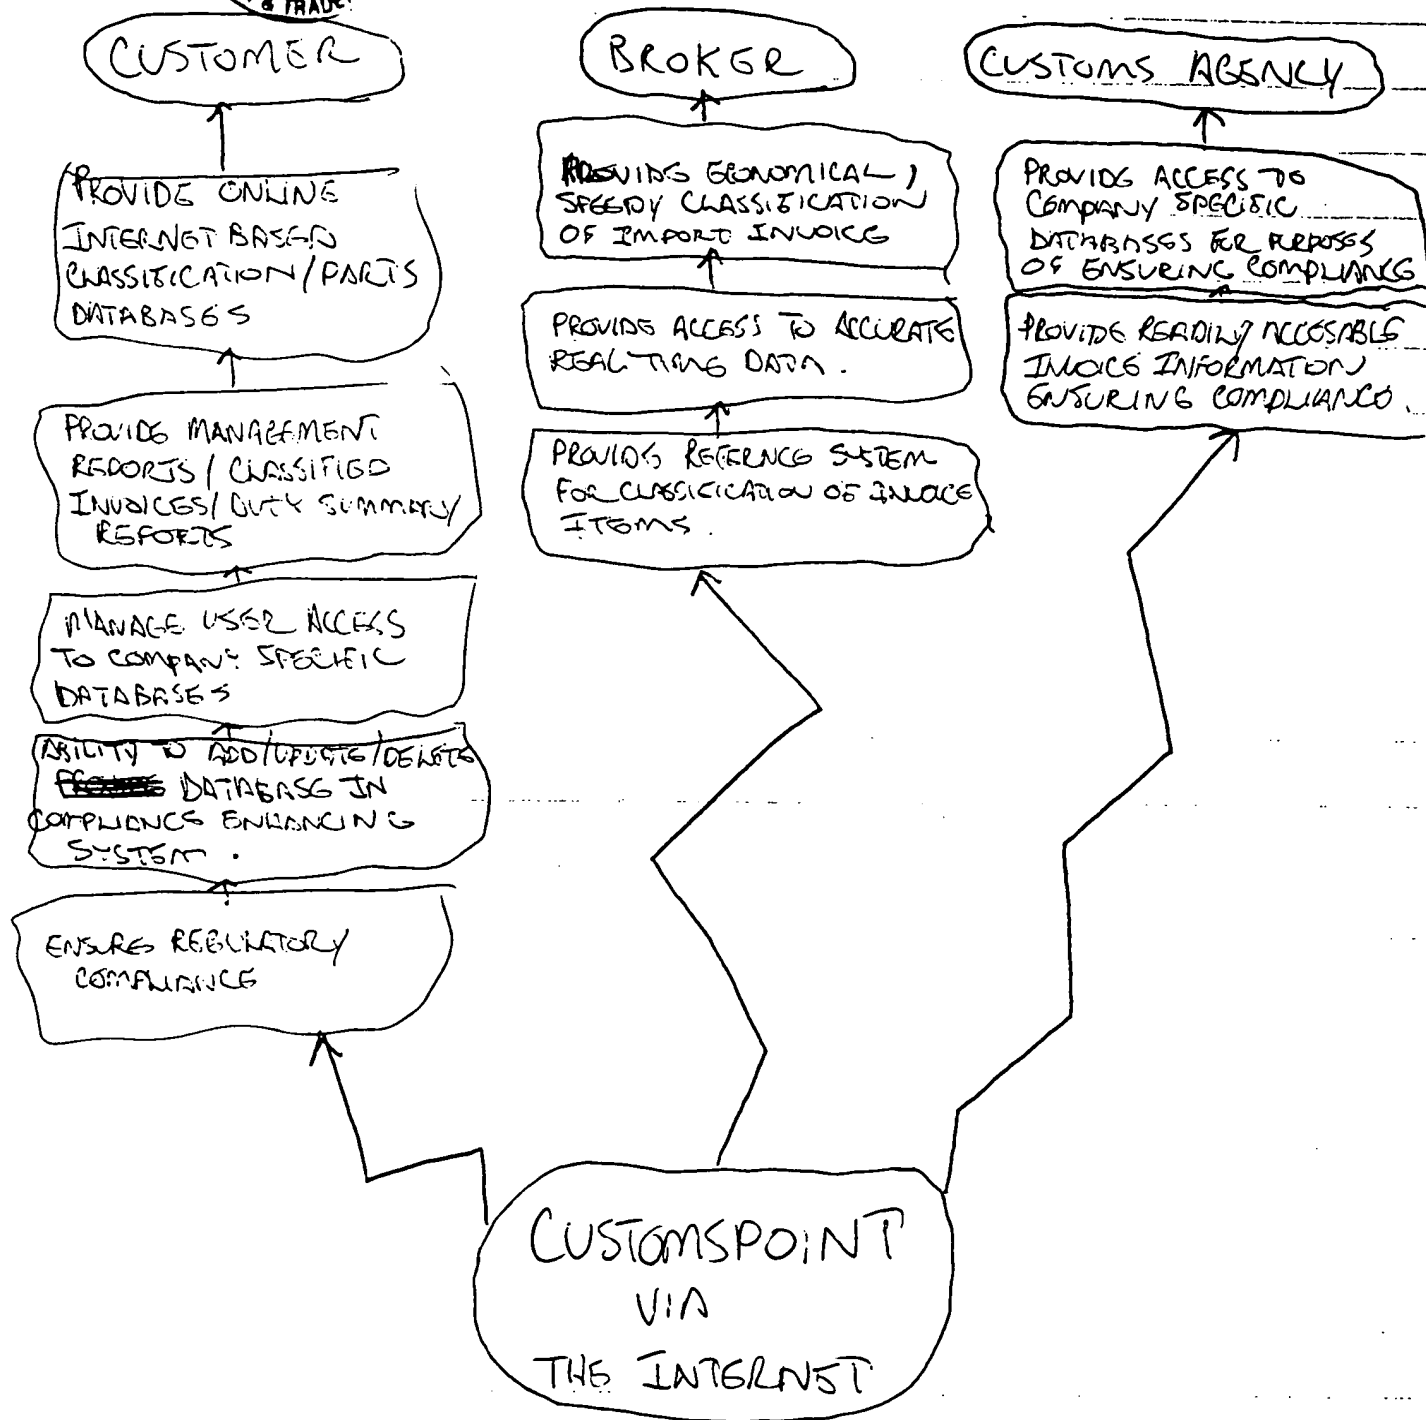 & TRADE
CUSTOMER
PROVIDE ONLINE
INTERNET BASED
CLASSIFICATION/PARTS
DATABASES
PROVIDE MANAGEMENT
REPORTS/CLASSIFIED
INVOICES/DUTY SUMMARY
REPORTS
MANAGE USER ACCESS
TO COMPANY SPECIFIC
DATABASES
ABILITY TO ADD/UPDATE/DELETE
DATABASE IN
COMPLIANCE ENHANCING
SYSTEM.
ENSURES REGULATORY
COMPLIANCE
BROKER
PROVIDE ECONOMICAL,
SPEEDY CLASSIFICATION
OF IMPORT INVOICE
PROVIDE ACCESS TO ACCURATE
REAL TIME DATA.
PROVIDE REFERNCE SYSTEM
FOR CLASSIFICATION OF INVOICE
ITEMS.
CUSTOMS AGENCY
PROVIDE ACCESS TO
COMPANY SPECIFIC
DATABASES FOR PURPOSES
OF ENSURING COMPLIANCE
PROVIDE READILY ACCESABLE
INVOICE INFORMATION
ENSURING COMPLIANCE.
CUSTOMSPOINT
VIA
THE INTERNET